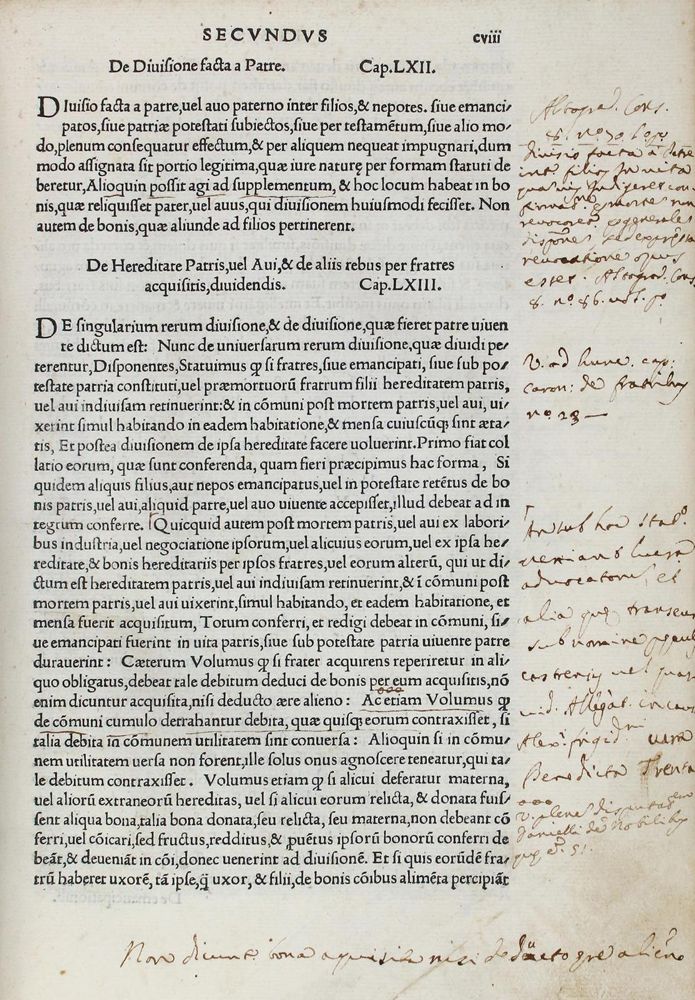 SECVNDVS cviii
De Diuisione facta a Patre. Cap.LXII.
DIuisio facta a patre,uel auo paterno inter filios,& nepotes. siue emanci/
patos,siue patriæ potestati subiectos,siue per testamētum,siue alio mo/
do,plenum consequatur effectum,& per aliquem nequeat impugnari,dum
modo assignata sit portio legitima,quæ iure naturę per formam statuti de
beretur,Alioquin possit agi ad supplementum, & hoc locum habeat in bo
nis,quæ reliquisset pater,uel auus,qui diuisionem huiusmodi fecisset. Non
autem de bonis,quæ aliunde ad filios pertinerent.
De Hereditate Patris,uel Aui,& de aliis rebus per fratres
acquisitis,diuidendis. Cap.LXIII.
DE singularium rerum diuisione,& de diuisione,quæ fieret patre uiuen
te dictum est: Nunc de uniuersarum rerum diuisione,quæ diuidi pe/
terentur,Disponentes,Statuimus ꝙ si fratres,siue emancipati, siue sub po/
testate patria constituti,uel præmortuorū fratrum filii hereditatem patris,
uel aui indiuisam retinuerint:& in cōmuni post mortem patris,uel aui, ui/
xerint simul habitando in eadem habitatione,& mensa cuiuscūqȝ sint æta/
tis, Et postea diuisionem de ipsa hereditate facere uoluerint.Primo fiat col
latio eorum, quæ sunt conferenda, quam fieri præcipimus hac forma, Si
quidem aliquis filius,aut nepos emancipatus,uel in potestate retētus de bo
nis patris,uel aui,aliquid patre,uel auo uiuente accepisset,illud debeat ad in
tegrum conferre. Quicquid autem post mortem patris,uel aui ex labori/
bus industria,uel negociatione ipsorum,uel alicuius eorum,uel ex ipsa he/
reditate,& bonis hereditariis per ipsos fratres,uel eorum alterū, qui ut di/
ctum est hereditatem patris,uel aui indiuisam retinuerint,& ī cōmuni post
mortem patris,uel aui uixerint,simul habitando, et eadem habitatione, et
mensa fuerit acquisitum, Totum conferri, et redigi debeat in cōmuni, si/
ue emancipati fuerint in uita patris,siue sub potestate patria uiuente patre
durauerint: Cæterum Volumus ꝙ si frater acquirens reperiretur in ali/
quo obligatus,debeat tale debitum deduci de bonis per eum acquisitis,nō
enim dicuntur acquisita,nisi deducto ære alieno: Ac etiam Volumus ꝙ
de cōmuni cumulo detrahantur debita, quæ quisqȝ eorum contraxisset, si
talia debita in cōmunem utilitatem sint conuersa: Alioquin si in cōmu/
nem utilitatem uersa non forent,ille solus onus agnoscere teneatur,qui ta/
le debitum contraxisset. Volumus etiam ꝙ si alicui deferatur materna,
uel aliorū extraneorū hereditas, uel si alicui eorum relicta, & donata fuis/
sent aliqua bona,talia bona donata,seu relicta, seu materna,non debeant cō
ferri,uel cōicari,sed fructus,redditus,& ꝓuētus ipsorū bonorū conferri de
beāt,& deueniāt in cōi,donec uenerint ad diuisionē. Et si quis eorūdē fra/
trū haberet uxorē, tā ipse,q̄ uxor, & filii,de bonis cōibus alimēta percipiāt
Altograd. Cons.
diuisio facta à Patre
inter filios in uita
V. ad hunc. cap:
de fratribus
nº. 23 —
An sub hoc stat.º
aduocatorū, et
alia que transeunt
sub nomine
Benedicta
Non dicunt.r bona aquisita nisi deducto ere alieno